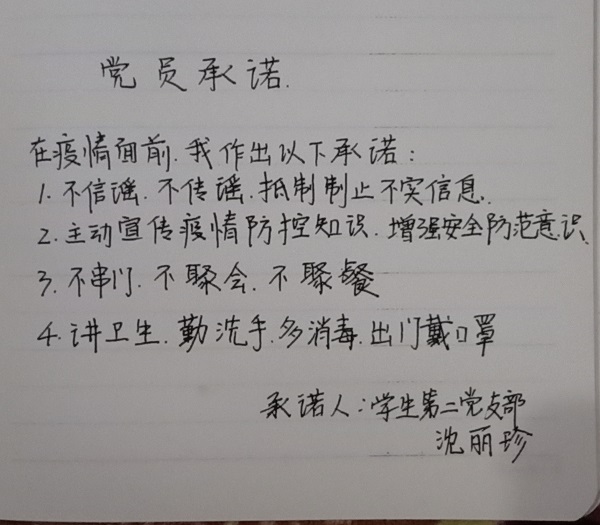 党员承诺.
在疫情面前.我作出以下承诺:
1.不信谣.不传谣.抵制制止不实信息.
2.主动宣传疫情防控知识.增强安全防范意识
3.不串门.不聚会.不聚餐
4.讲卫生.勤洗手.多消毒.出门戴口罩
承诺人:学生第二党支部
沈丽珍